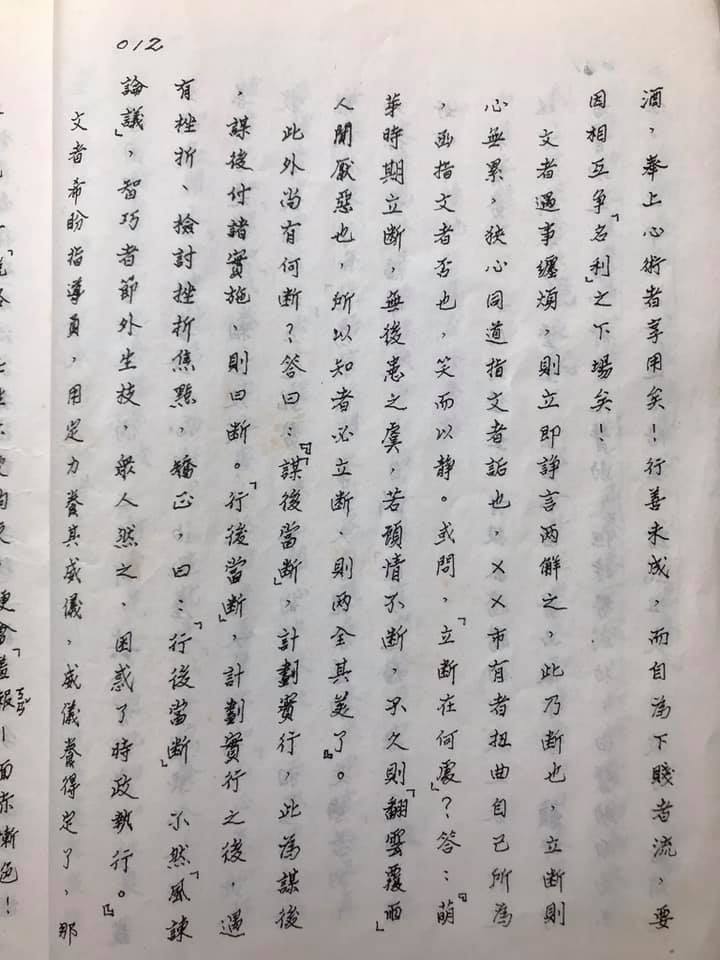 012
酒，奉上心術者享用矣！行善未成，而自為下賤者流，要
因相互争「名利」之下場矣！
文者遇事纏煩，則立即諍言两解之，此乃断也，立断則
心無累，狹心同道指文者詬也，××市有者扭曲自己所為
，函指文者否也，笑而以静。或問，「立断在何處」？答：『萌
芽時期立断，無後患之虞，若頭情不断，不久則「翻雲覆雨」
人聞厭惡也，所以知者必立断、則两全其美了。』
此外尚有何断？答曰：『「謀後當断」，計劃實行，此為謀後
，謀後付諸實施、則曰断。「行後當断」，計劃實行之後，遇
有挫折、檢討挫折焦點，矯正，曰：「行後當断」不然「風諫
論議」，智巧者節外生技，衆人然之、困惑了時政執行。』
文者希盼指導員，用定力養其威儀，威儀養得定了，那